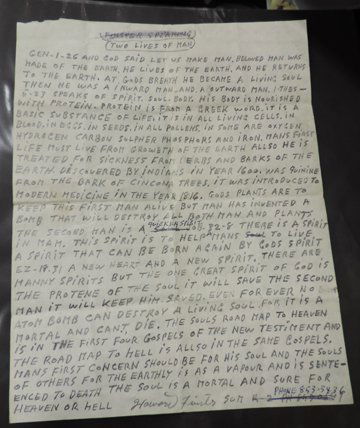 TWO LIVES OF MAN
GEN. 1-26 AND GOD SAID LET US MAKE MAN. BELOVED MAN WAS
MADE OF THE EARTH, HE LIVES OF THE EARTH, AND HE RETURNS
TO THE EARTH. AT GODS BREATH HE BECAME A LIVING SOUL
THEN HE WAS A INWARD MAN, AND A OUTWARD MAN, 1 THES-
5-23 SPEAKS OF SPIRIT. SOUL. BODY. HIS BODY IS NOURISHED
WITH PROTEIN. PROTEIN IS FROM A GREEK WORD. IT IS A
BASIC SUBSTANCE OF LIFE, IT IS IN ALL LIVING CELLS, IN
BLOOD, IN EGGS, IN SEEDS, IN ALL POLLENS, IN SOME ARE OXYGEN
HYDROGEN CARBON SULPHER PHOSPHORS AND IRON. MANS FIRST
LIFE MUST LIVE FROM GROWETH OF THE EARTH ALLSO HE IS
TREATED FOR SICKNESS FROM HERBS AND BARKS OF THE
EARTH DESCOVERED BY INDIANS IN YEAR 1600. WAS QUININE
FROM THE BARK OF CINCONA TREES, IT WAS INTRODUCED TO
MODERN MEDICINE IN THE YEAR 1816. GODS PLANTS ARE TO
KEEP THIS FIRST MAN ALIVE BUT MAN HAS INVENTED A
BOMB THAT WILL DESTROY ALL BOTH MAN AND PLANTS
THE SECOND MAN IS A OF 32-8 THERE IS A SPIRIT
IN MAN. THIS SPIRIT IS TO HELP MANS SOUL TO LIVE
A SPIRIT THAT CAN BE BORN AGAIN BY GODS SPIRIT
EZ-18.31 A NEW HEART AND A NEW SPIRIT. THERE ARE
MANNY SPIRITS BUT THE ONE GREAT SPIRIT OF GOD IS
THE PROTENE OF THE SOUL IT WILL SAVE THE SECOND
MAN IT WILL KEEP HIM SAVED. EVEN FOR EVER NO
ATOM BOMB CAN DESTROY A LIVING SOUL. FOR IT IS A
MORTAL AND CAN,T DIE. THE SOULS ROAD MAP TO HEAVEN
IS IN THE FIRST FOUR GOSPELS OF THE NEW TESTIMENT AND
THE ROAD MAP TO HELL IS ALLSO IN THE SAME GOSPELS.
MANS FIRST CONCERN SHOULD BE FOR HIS SOUL AND THE SOULS
OF OTHERS FOR THE EARTHLY IS AS A VAPOUR AND IS SENTE-
ENCED TO DEATH THE SOUL IS A MORTAL AND SURE FOR
HEAVEN OR HELL
PHONE 853-